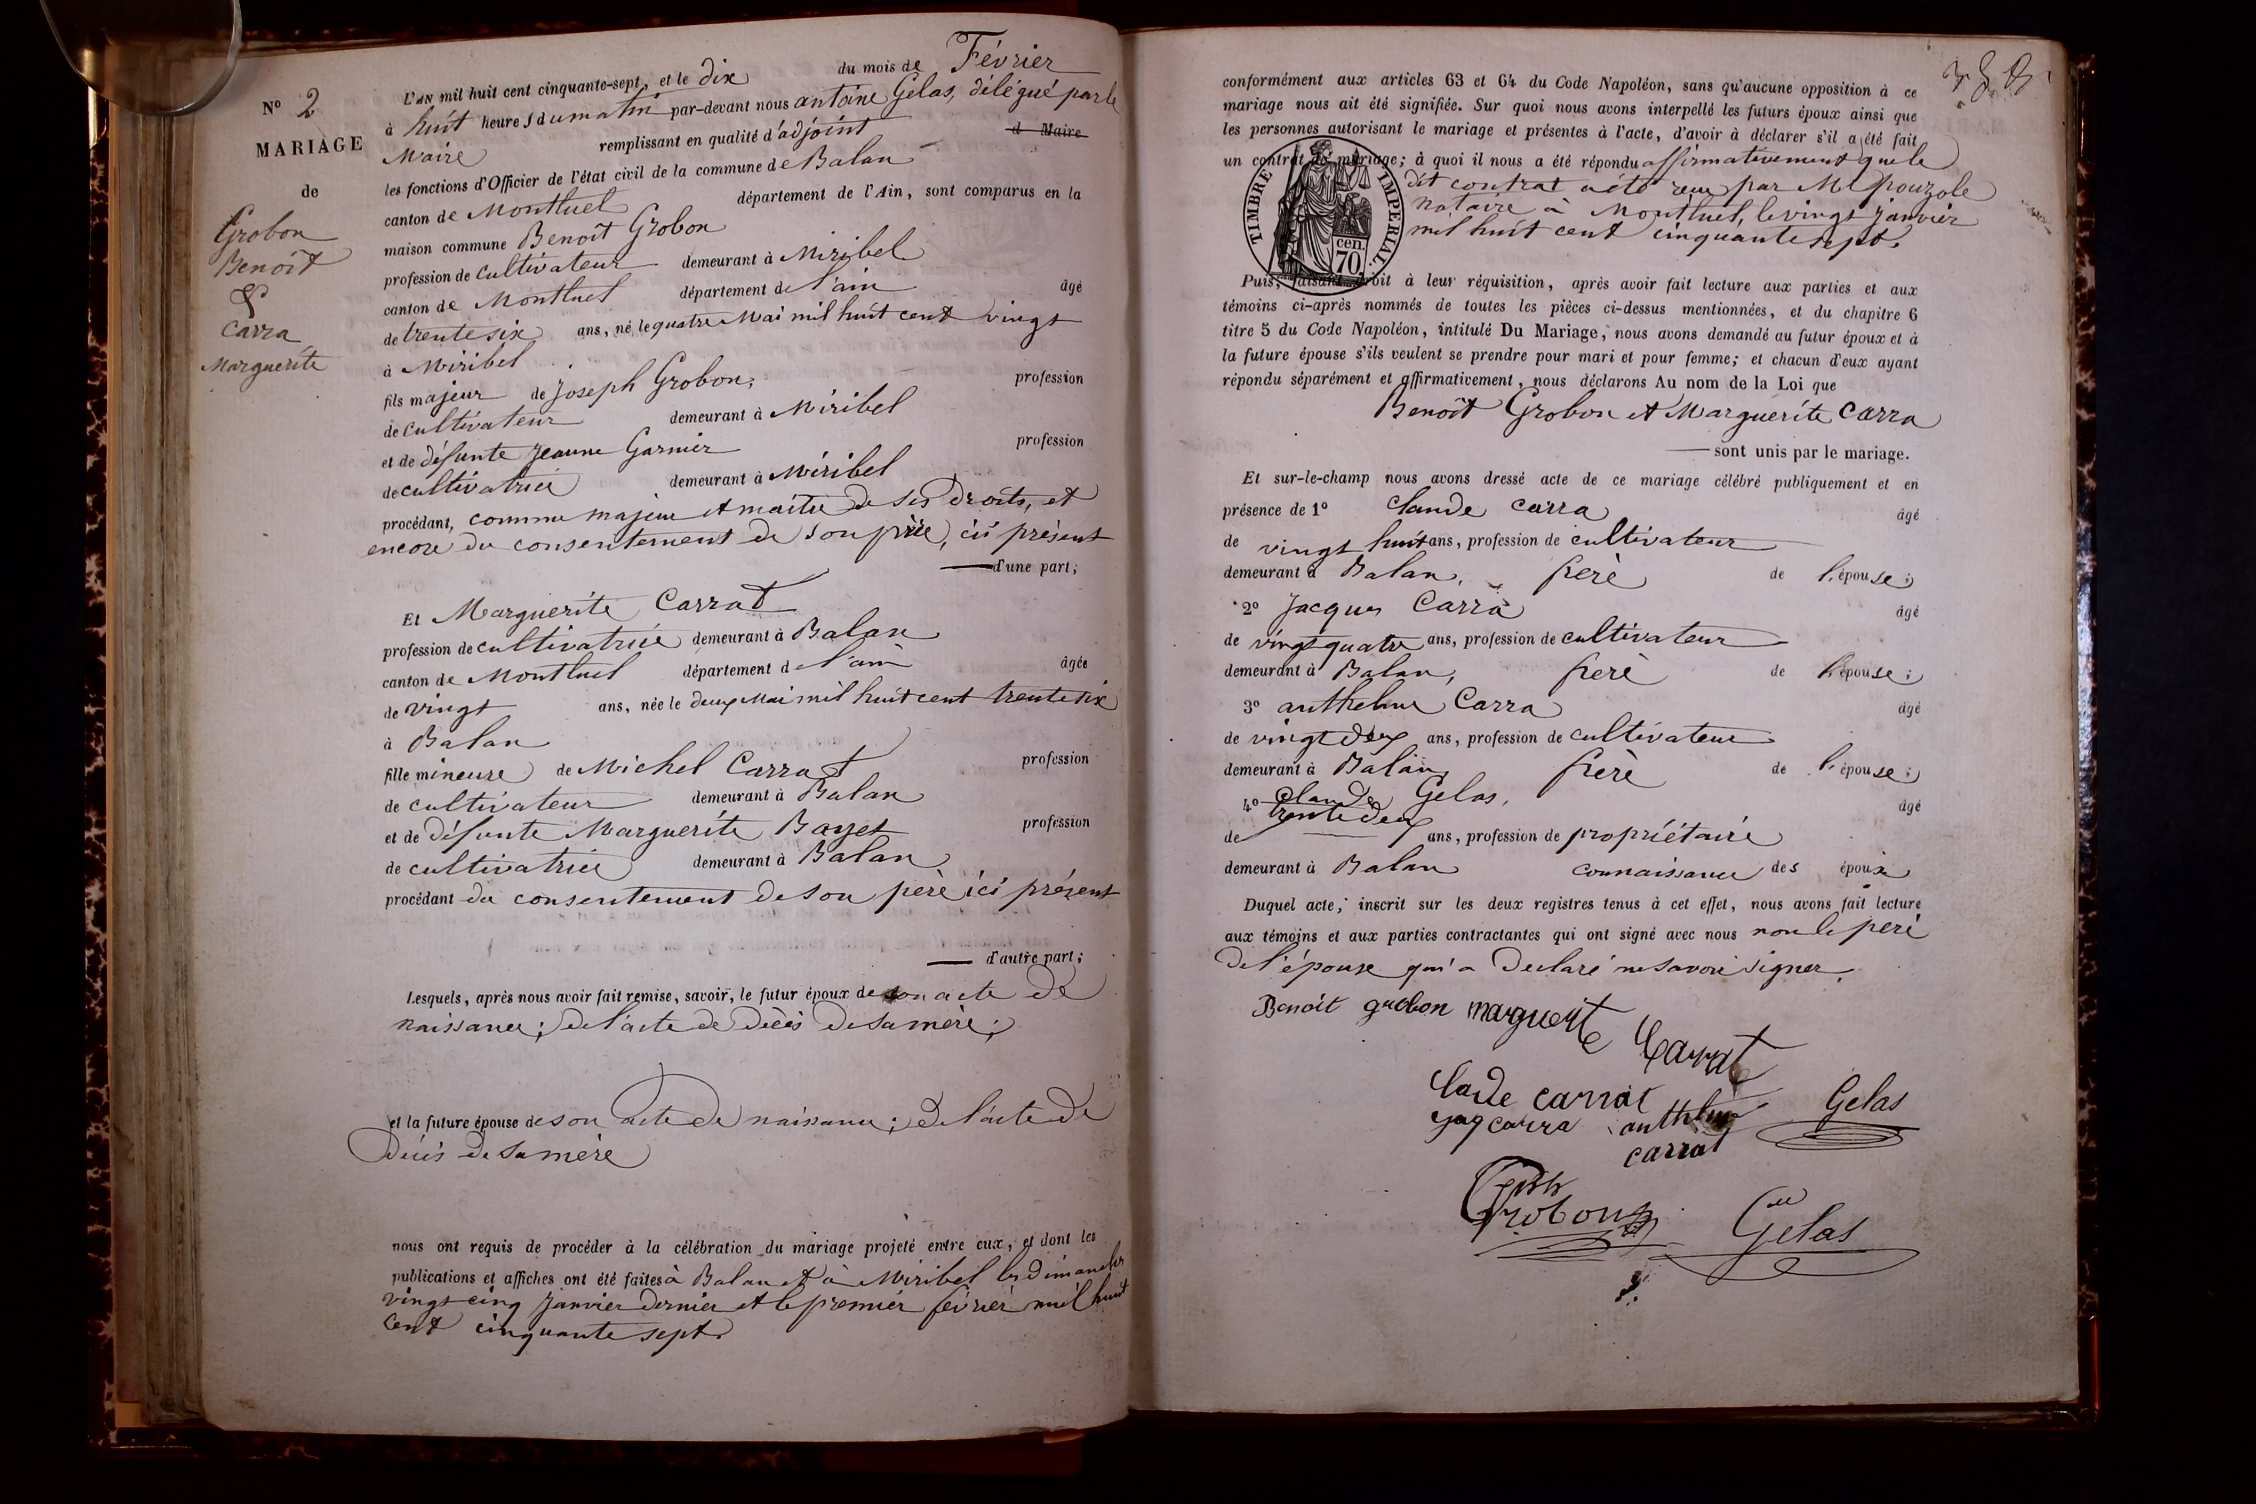 N° 2
MARIAGE
de
Grobon
Benoît
&
Carra
Marguerite
L'AN mil huit cent cinquante-sept, et le dix du mois de Février
à huit heures du matin par-devant nous antoine Gelas, délégué par le
Maire remplissant en qualité d'adjoint d Maire
les fonctions d'Officier de l'état civil de la commune de Balan
canton de Montluel département de l'Ain, sont comparus en la
maison commune Benoît Grobon
profession de cultivateur demeurant à Miribel
canton de Montluel département de l'ain âgé
de trente six ans, né le quatre Mai mil huit cent vingt
à Miribel
fils majeur de Joseph Grobon, profession
de cultivateur demeurant à Miribel
et de défunte Jeanne Garnier profession
de cultivatrice demeurant à Miribel
procédant, comme majeur et maitre de ses droits, et
encore du consentement de son père, ici présent
d'une part;
Et Marguerite Carrat
profession de cultivatrice demeurant à Balan
canton de Montluel département de l'ain âgée
de vingt ans, née le deux Mai mil huit cent trente six
à Balan
fille mineure de Michel Carrat profession
de cultivateur demeurant à Balan
et de défunte Marguerite Bayet profession
de cultivatrice demeurant à Balan
procédant du consentement de son père ici présent
d'autre part;
Lesquels, après nous avoir fait remise, savoir, le futur époux de son acte de
naissance; de l'acte de décès de sa mère;
et la future épouse de son acte de naissance; de l'acte de
décès de sa mère
nous ont requis de procéder à la célébration du mariage projeté entre eux, et dont les
publications et affiches ont été faites à Balan et à Miribel les dimanches
vingt cinq Janvier dernier et le premier février mil huit
cent cinquante sept.
conformément aux articles 63 et 64 du Code Napoléon, sans qu'aucune opposition à ce
mariage nous ait été signifiée. Sur quoi nous avons interpellé les futurs époux ainsi que
les personnes autorisant le mariage et présentes à l'acte, d'avoir à déclarer s'il a été fait
un contrat de mariage; à quoi il nous a été répondu affirmativement que le
dit contrat a été reçu par Me pouzole
notaire à Montluel, le vingt Janvier
mil huit cent cinquante sept.
TIMBRE IMPERIAL
cen.
70
Puis, faisant droit à leur réquisition, après avoir fait lecture aux parties et aux
témoins ci-après nommés de toutes les pièces ci-dessus mentionnées, et du chapitre 6
titre 5 du Code Napoléon, intitulé Du Mariage, nous avons demandé au futur époux et à
la future épouse s'ils veulent se prendre pour mari et pour femme; et chacun d'eux ayant
répondu séparément et affirmativement, nous déclarons Au nom de la Loi que
Benoît Grobon et Marguerite Carra
sont unis par le mariage.
Et sur-le-champ nous avons dressé acte de ce mariage célébré publiquement et en
présence de 1° Claude Carra âgé
de vingt huit ans, profession de cultivateur
demeurant à Balan, frère de l'épouse;
2° Jacques Carra âgé
de vingt quatre ans, profession de cultivateur
demeurant à Balan, frère de l'épouse;
3° anthelme Carra âgé
de vingt deux ans, profession de cultivateur
demeurant à Balan, frère de l'épouse;
4° Claude Gelas, âgé
de trente deux ans, profession de propriétaire
demeurant à Balan connaissance des époux
Duquel acte, inscrit sur les deux registres tenus à cet effet, nous avons fait lecture
aux témoins et aux parties contractantes qui ont signé avec nous non le père
de l'épouse qui a declaré ne savoir signer.
Benoit grobon marguerite Carrat
Claude carrat
Jaq carra anthelme Gelas
carrat
Grobon Gelas